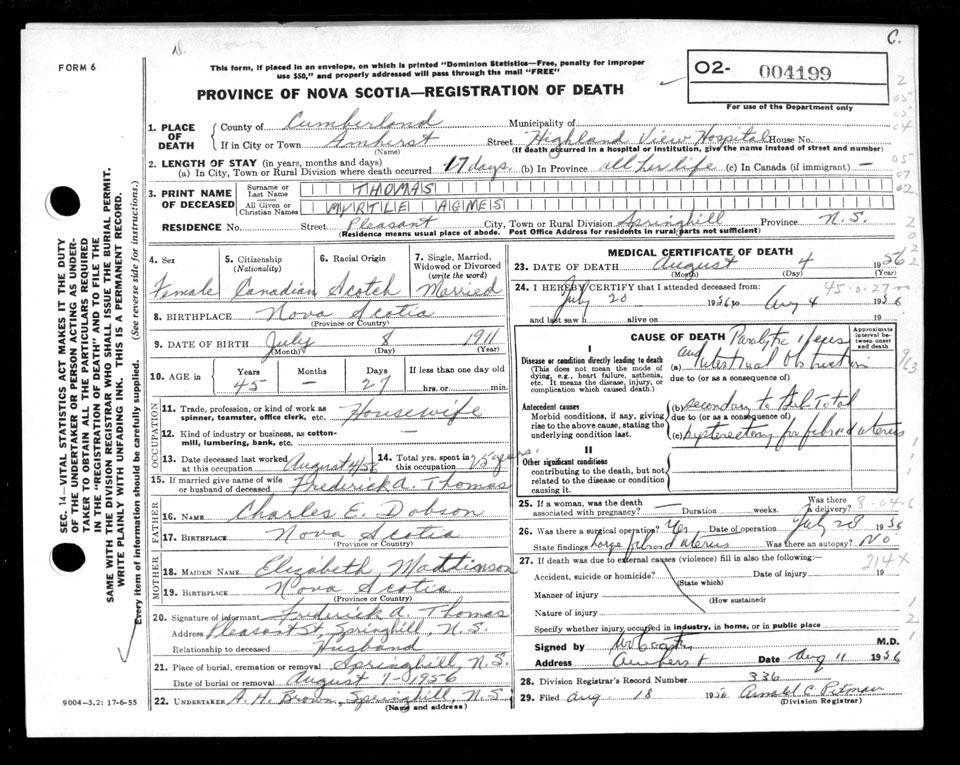 C.
FORM 6
This form, if placed in an envelope, on which is printed "Dominion Statistics—Free, penalty for improper
use $50," and properly addressed will pass through the mail "FREE"
02- 004199
For use of the Department only
PROVINCE OF NOVA SCOTIA—REGISTRATION OF DEATH
1. PLACE OF DEATH
County of Cumberland Municipality of
If in City or Town Amherst Street Highland View Hospital House No.
(Name) (If death occurred in a hospital or institution, give the name instead of street and number)
2. LENGTH OF STAY (in years, months and days)
(a) In City, Town or Rural Division where death occurred 17 days. (b) In Province all her life (c) In Canada (if immigrant) —
3. PRINT NAME OF DECEASED
Surname or Last Name THOMAS
All Given or Christian Names MYRTLE AGNES
RESIDENCE No. Street Pleasant City, Town or Rural Division Springhill Province N.S.
(Residence means usual place of abode. Post Office Address for residents in rural parts not sufficient)
4. Sex
Female
5. Citizenship
(Nationality)
Canadian
6. Racial Origin
Scotch
7. Single, Married,
Widowed or Divorced
(write the word)
Married
8. BIRTHPLACE Nova Scotia
(Province or Country)
9. DATE OF BIRTH July 8 1911
(Month) (Day) (Year)
10. AGE in
Years Months Days If less than one day old
45 — 27 hrs. or min.
OCCUPATION
11. Trade, profession, or kind of work as
spinner, teamster, office clerk, etc. Housewife
12. Kind of industry or business, as cotton-
mill, lumbering, bank, etc. —
13. Date deceased last worked
at this occupation August 4/56
14. Total yrs. spent in
this occupation 25 years.
15. If married give name of wife
or husband of deceased Frederick A. Thomas
FATHER
16. NAME Charles E. Dobson
17. BIRTHPLACE Nova Scotia
(Province or Country)
MOTHER
18. MAIDEN NAME Elizabeth Mattinson
19. BIRTHPLACE Nova Scotia
(Province or Country)
20. Signature of informant Frederick A. Thomas
Address Pleasant St, Springhill, N.S.
Relationship to deceased Husband
21. Place of burial, cremation or removal Springhill, N.S.
Date of burial or removal August 7-1956
22. UNDERTAKER A. H. Brown, Springhill, N.S.
(Name and address)
MEDICAL CERTIFICATE OF DEATH
23. DATE OF DEATH August 4 1956
(Month) (Day) (Year)
24. I HEREBY CERTIFY that I attended deceased from: 45-0-27
July 20 1956 to Aug 4 1956
and last saw h alive on 19
CAUSE OF DEATH
Approximate
interval be-
tween onset
and death
I
Disease or condition directly leading to death
(This does not mean the mode of
dying, e.g., heart failure, asthenia,
etc. It means the disease, injury, or
complication which caused death.)
Paralytic ileus
and
(a) Intestinal obstruction
due to (or as a consequence of)
Antecedent causes
Morbid conditions, if any, giving
rise to the above cause, stating the
underlying condition last.
(b) secondary to Total
due to (or as a consequence of)
(c) hysterectomy for fibroid uterus
II
Other significant conditions
contributing to the death, but not
related to the disease or condition
causing it.
25. If a woman, was the death
associated with pregnancy? Duration weeks. Was there
a delivery?
26. Was there a surgical operation? Yes Date of operation July 28 1956
State findings Large fibroid uterus Was there an autopsy? No
27. If death was due to external causes (violence) fill in also the following:— 214 X
Accident, suicide or homicide? Date of injury 19
(State which)
Manner of injury
(How sustained)
Nature of injury
Specify whether injury occurred in industry, in home, or in public place
Signed by M.D.
Address Amherst Date Aug 11 1956
28. Division Registrar's Record Number 336
29. Filed Aug 18 1956 Arnold C. Pitman
(Division Registrar)
SEC. 14—VITAL STATISTICS ACT MAKES IT THE DUTY
OF THE UNDERTAKER OR PERSON ACTING AS UNDER-
TAKER TO OBTAIN ALL THE PARTICULARS REQUIRED
IN THE "REGISTRATION OF DEATH" AND TO FILE THE
SAME WITH THE DIVISION REGISTRAR WHO SHALL ISSUE THE BURIAL PERMIT.
WRITE PLAINLY WITH UNFADING INK. THIS IS A PERMANENT RECORD.
Every item of information should be carefully supplied. (See reverse side for instructions.)
9004-3.2: 17-6-55